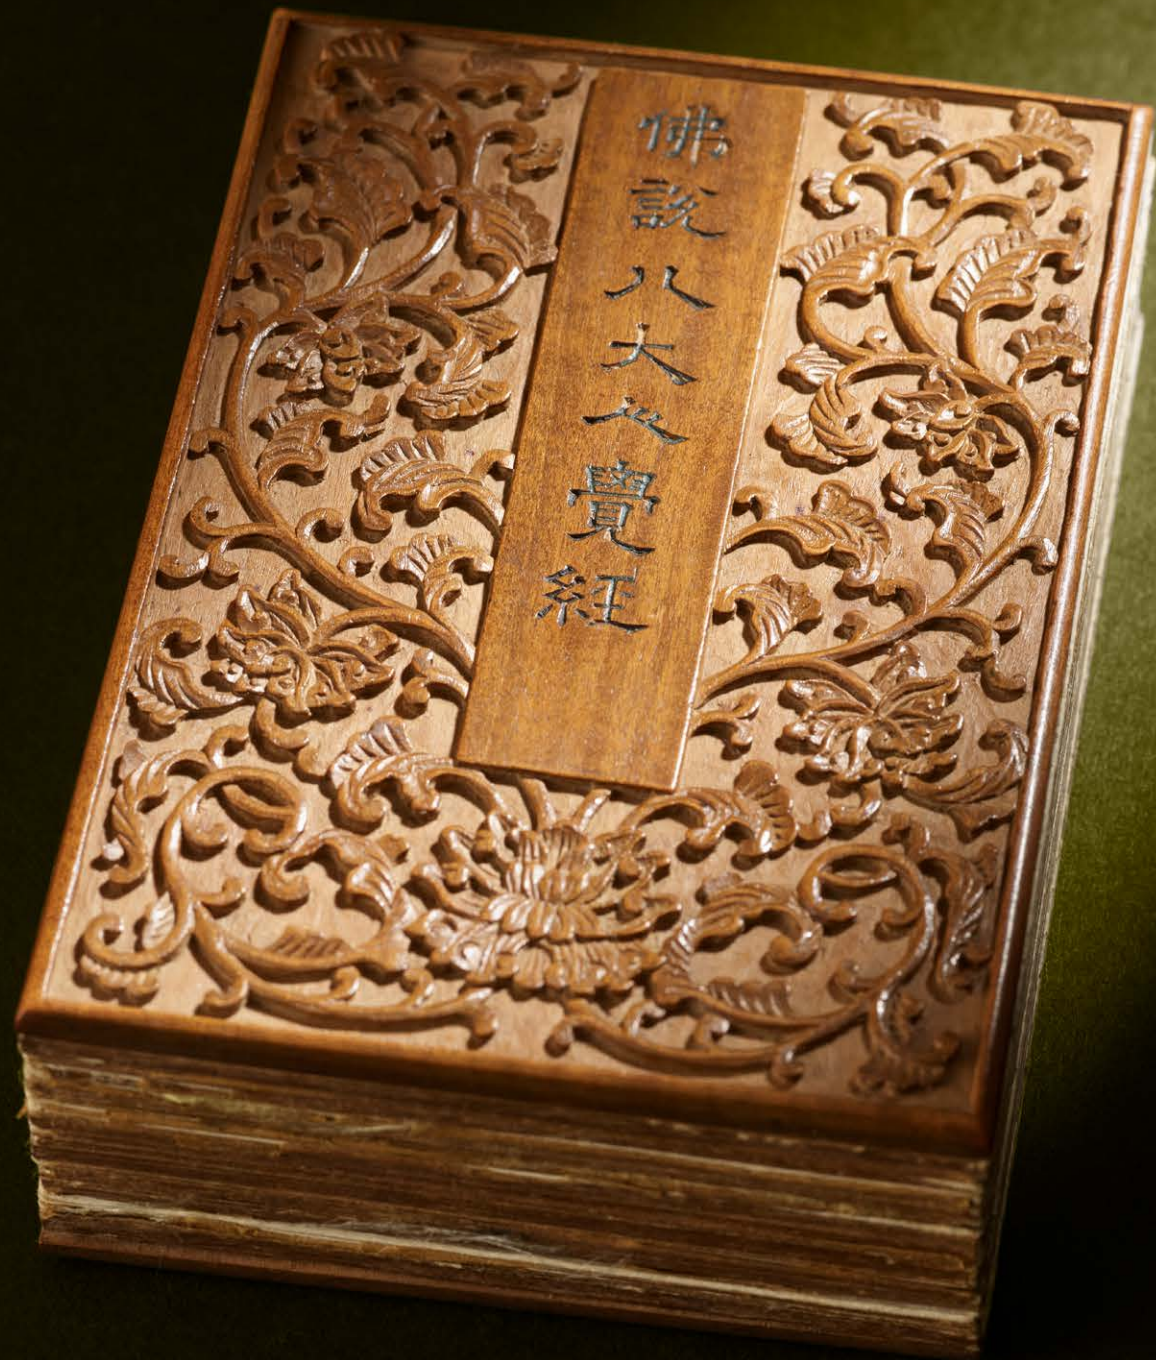 佛說八大人覺經